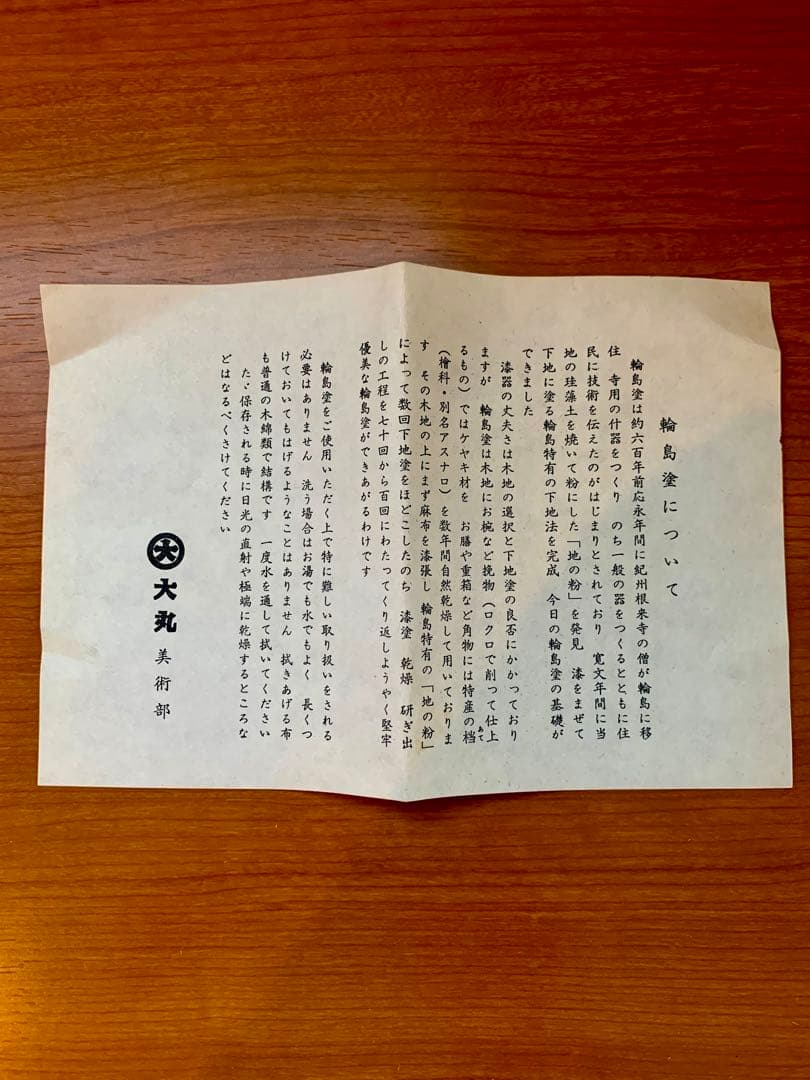 輪島塗について
輪島塗は約六百年前応永年間に紀州根来寺の僧が輪島に移
住　寺用の什器をつくり　のち一般の器をつくるとともに住
民に技術を伝えたのがはじまりとされており　寛文年間に当
地の珪藻土を焼いて粉にした「地の粉」を発見　漆をまぜて
下地に塗る輪島特有の下地法を完成　今日の輪島塗の基礎が
できました
漆器の丈夫さは木地の選択と下地塗の良否にかかっており
ますが　輪島塗は木地にお椀など挽物（ロクロで削って仕上
るもの）ではケヤキ材を　お膳や重箱など角物には特産の档
あて
（檜科・別名アスナロ）を数年間自然乾燥して用いておりま
す　その木地の上にまず麻布を漆張し　輪島特有の「地の粉」
によって数回下地塗をほどこしたのち　漆塗　乾燥　研ぎ出
しの工程を七十回から百回にわたってくり返しようやく堅牢
優美な輪島塗ができあがるわけです
輪島塗をご使用いただく上で特に難しい取り扱いをされる
必要はありません　洗う場合はお湯でも水でもよく　長くつ
けておいてもはげるようなことはありません　拭きあげる布
も普通の木綿類で結構です　一度水を通して拭いてください
た、保存される時に日光の直射や極端に乾燥するところな
どはなるべくさけてください
大　大丸　美術部